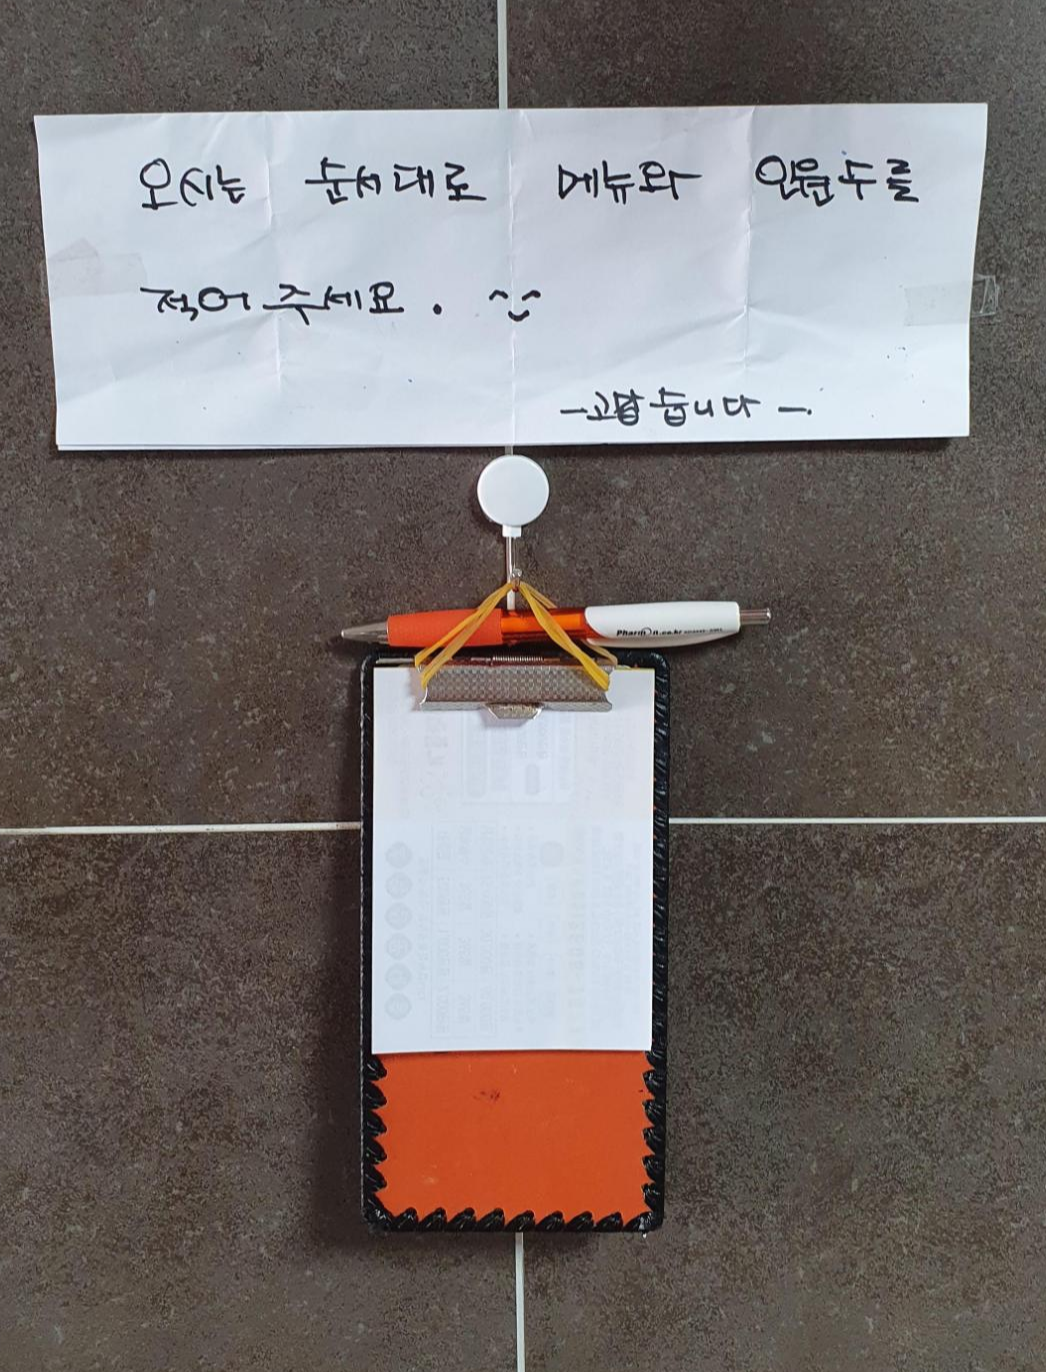 오시는 순서대로 메뉴와 인원수를
적어주세요. ^^
-고맙습니다-.